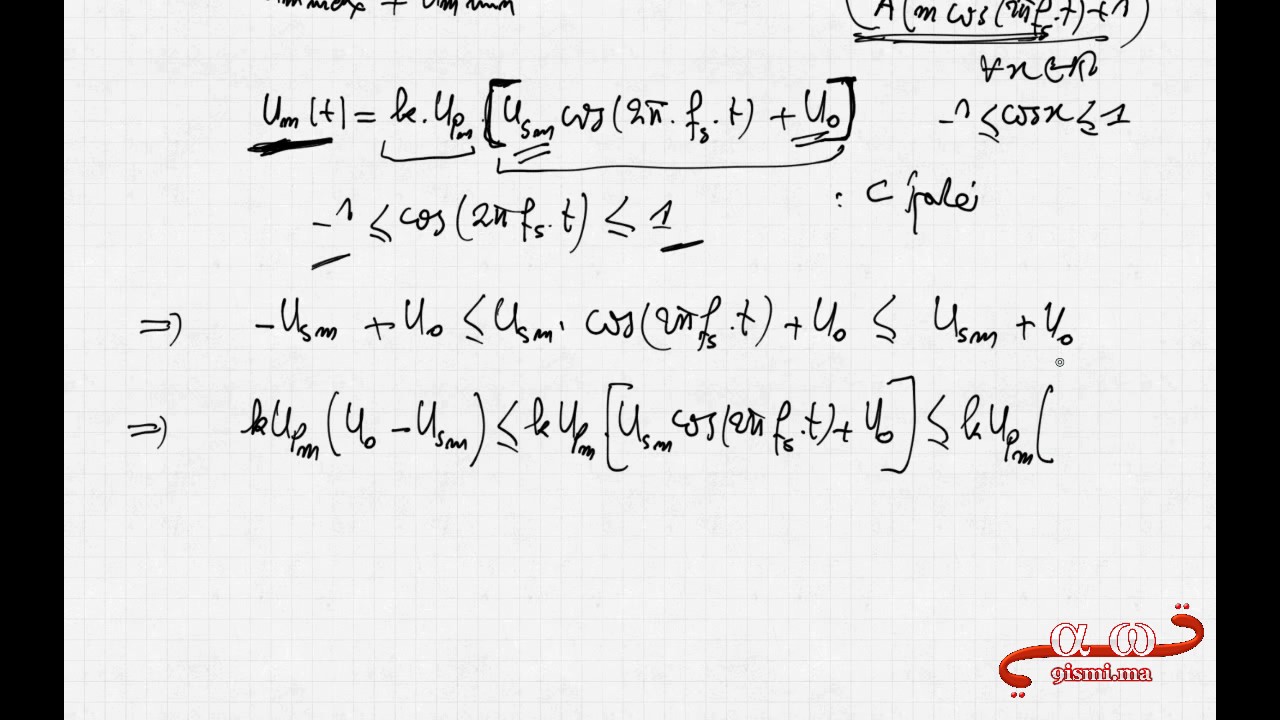 Um max + Um min
A(m cos(2πfs.t)+1)
∀x∈ℝ
Um(t) = k.Upm.[Usm cos(2π.fs.t) + U0]
-1 ≤ cosx ≤ 1
-1 ≤ cos(2πfs.t) ≤ 1
=> -Usm + U0 ≤ Usm. cos(2πfs.t) + U0 ≤ Usm + U0
=> kUpm(U0 - Usm) ≤ kUpm.[Usm cos(2πfs.t)+U0] ≤ kUpm(
α ω ق
9ismi.ma